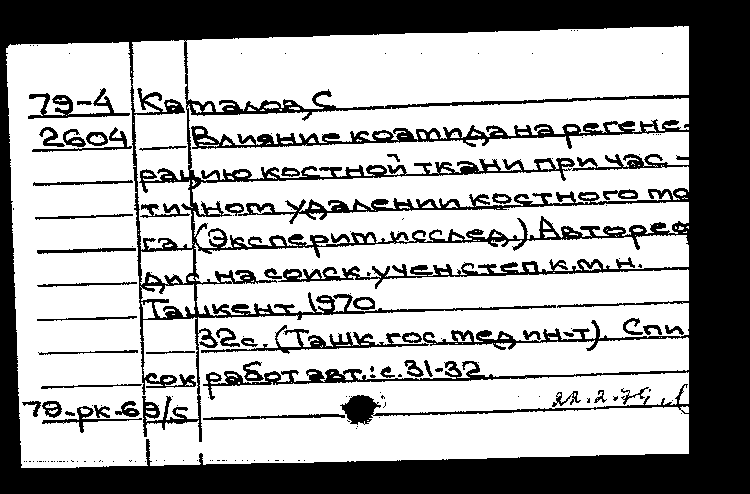 79-4 Каталов, С
2604 Влияние коамида на регене-
рацию костной ткани при час-
тичном удалении костного мо
га. (Эксперим.исслед.). Автореф
дис. на соиск.учен.степ.к.м.н.
Ташкент, 1970.
32с. (Ташк.гос.мед ин-т). Спи
сок работ авт.: с.31-32.
79-рк-69/5
22.2.79